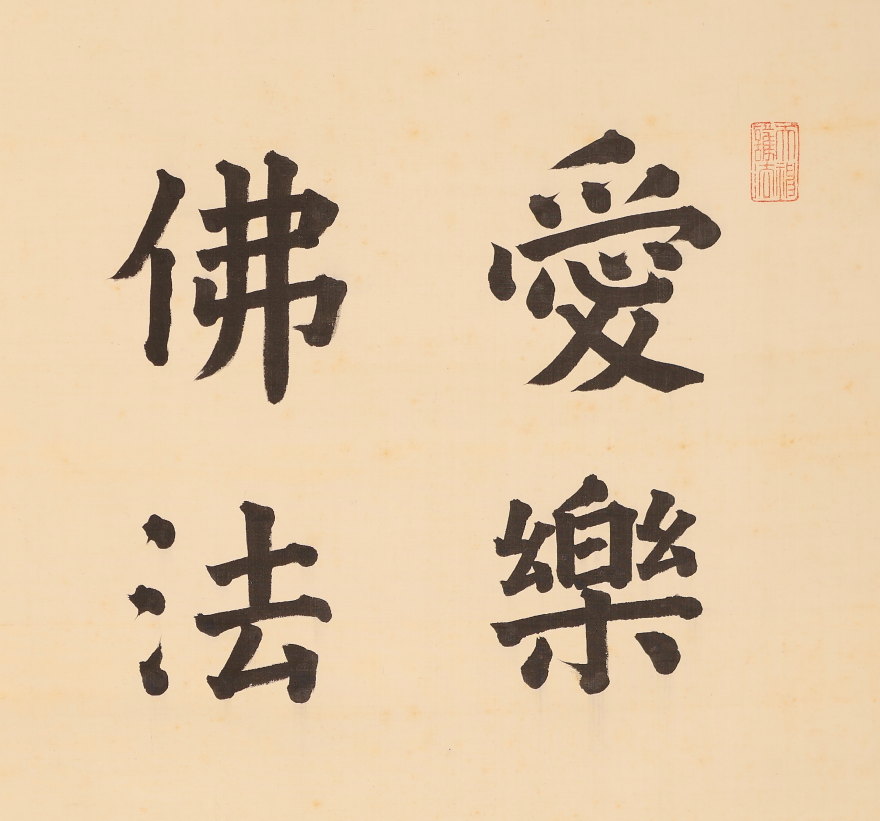 愛樂
佛法